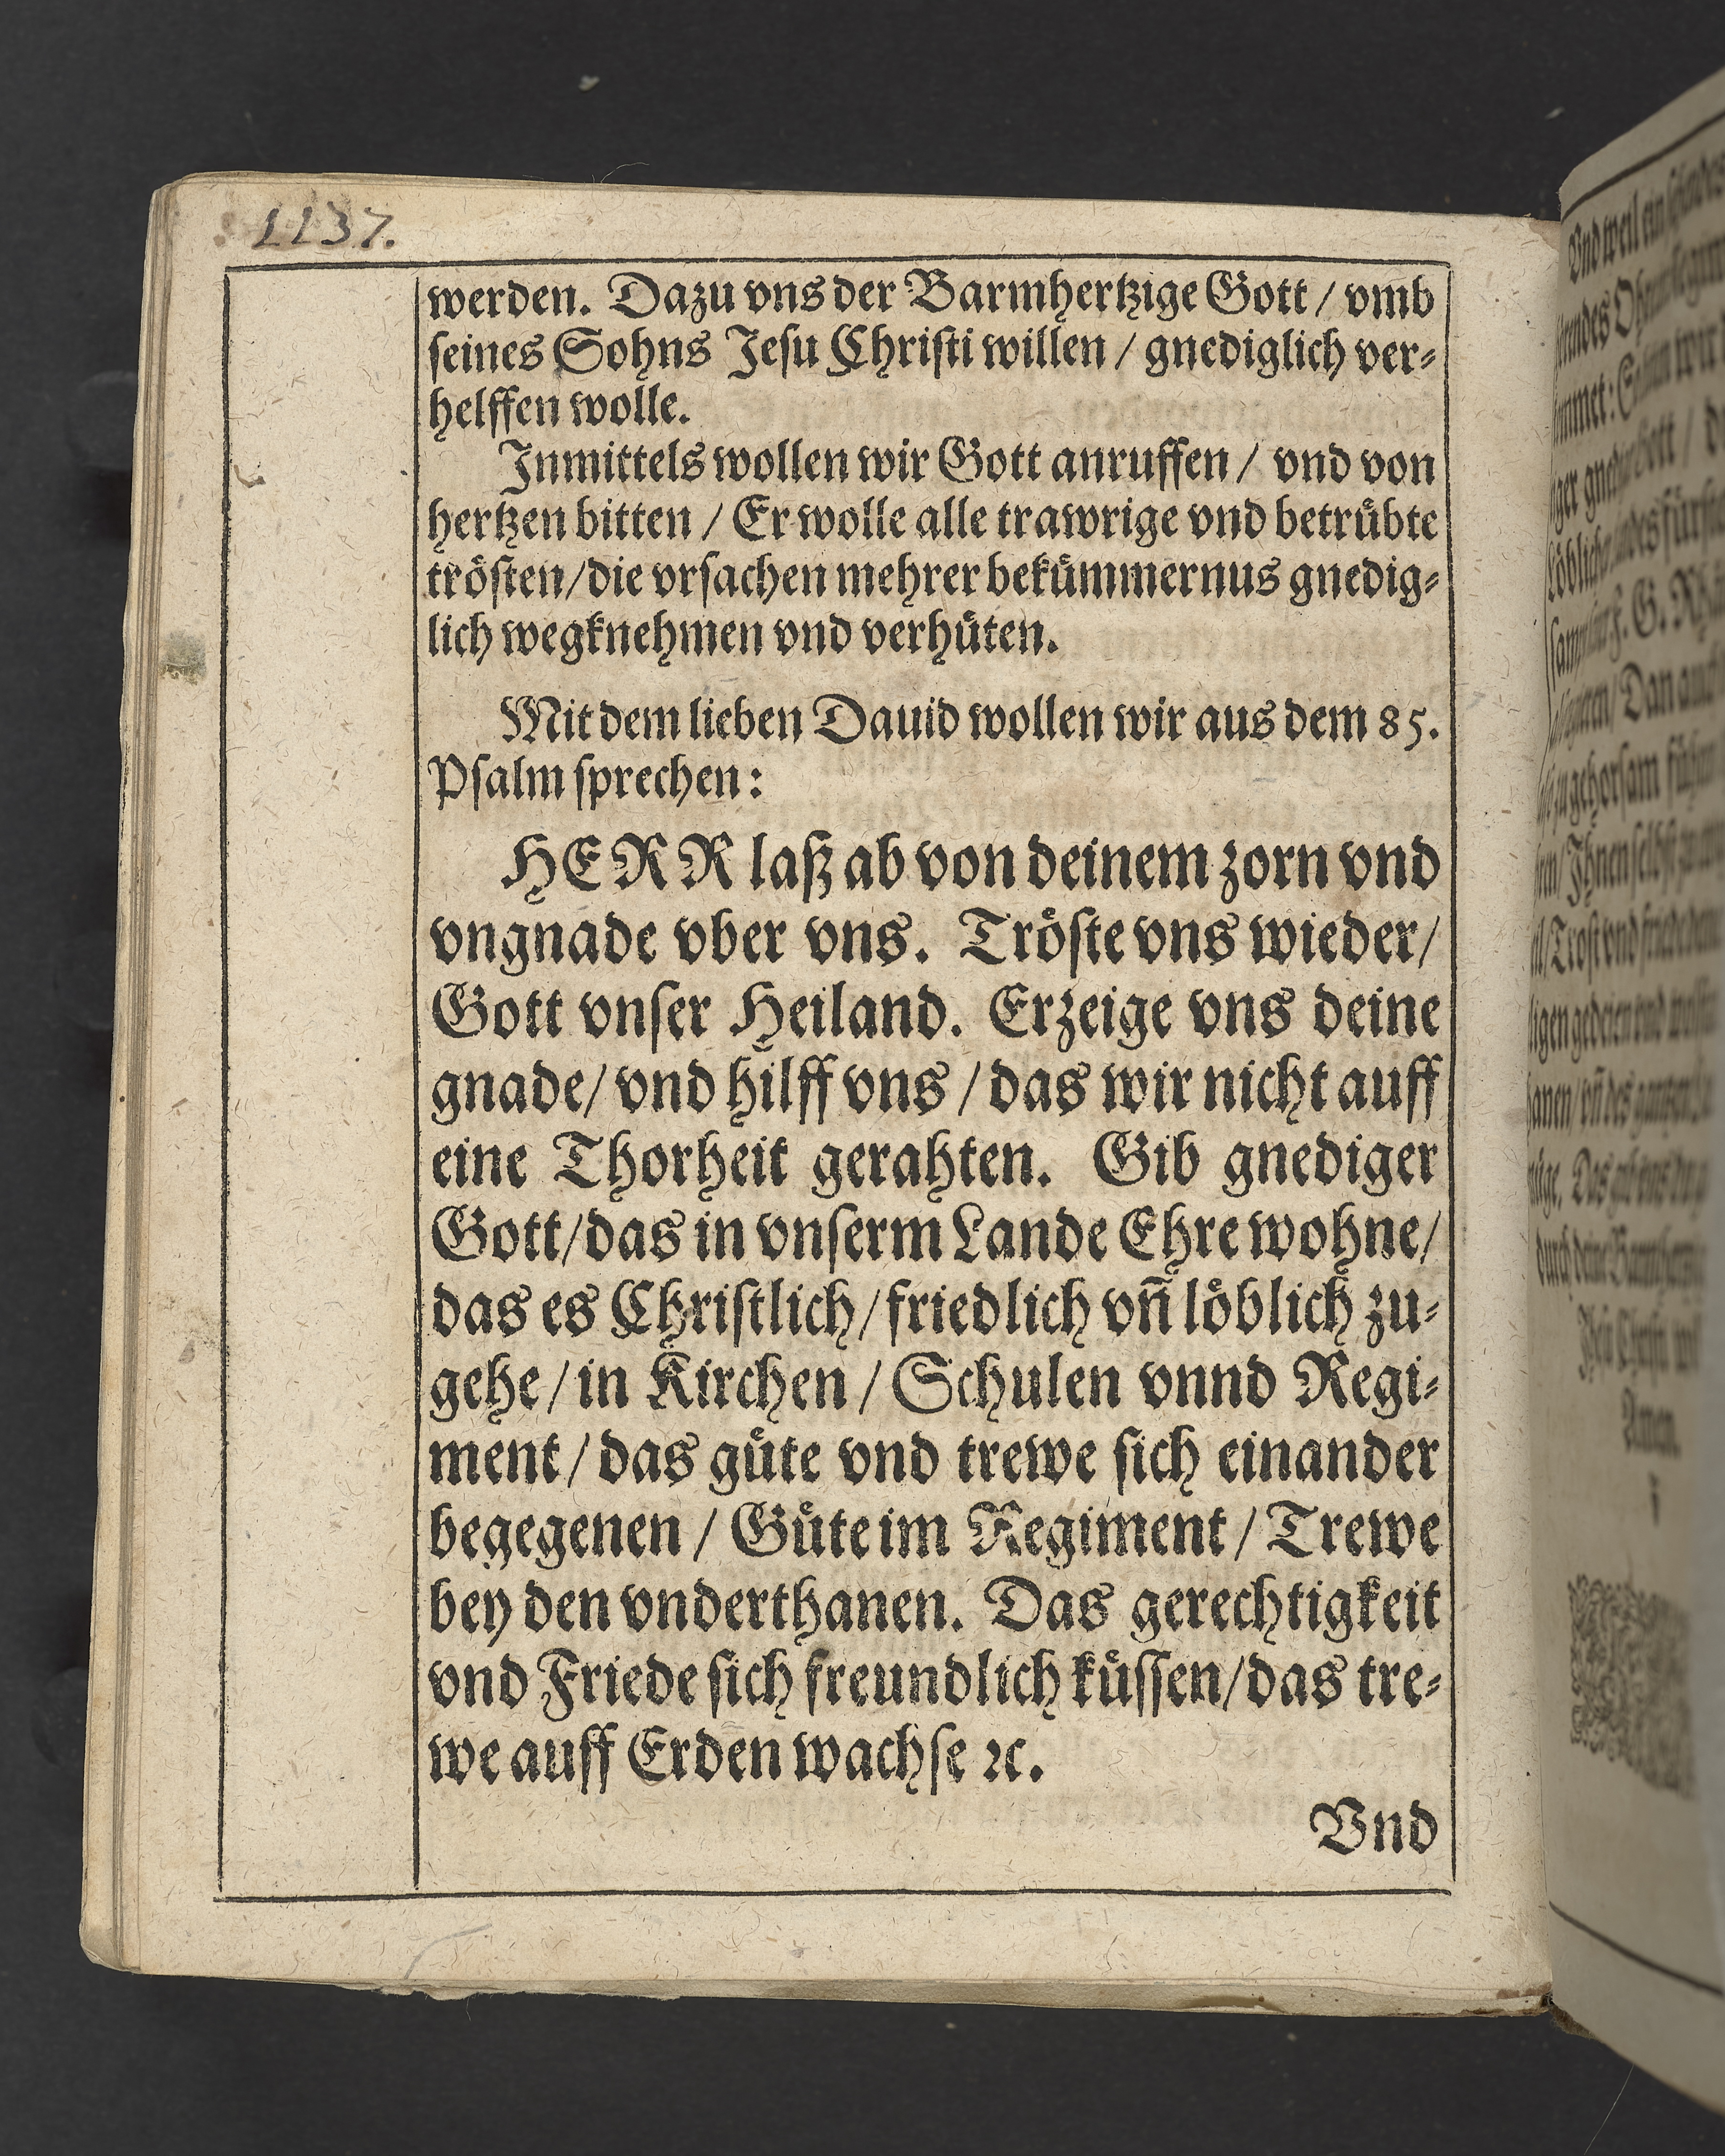 1137.
werden. Dazu vns der Barmhertzige Gott / vmb
ſeines Sohns Jeſu Chriſti willen / gnediglich ver⸗
helffen wolle.
Inmittels wollen wir Gott anruffen / vnd von
hertzen bitten / Er wolle alle trawrige vnd betruͤbte
troͤſten/die vrſachen mehrer bekuͤmmernus gnedig⸗
lich wegknehmen vnd verhuͤten.
Mit dem lieben Dauid wollen wir aus dem 85.
Pſalm ſprechen:
HERR laß ab von deinem zorn vnd
vngnade vber vns. Troͤſte vns wieder/
Gott vnſer Heiland. Erzeige vns deine
gnade/ vnd hilff vns / das wir nicht auff
eine Thorheit gerahten. Gib gnediger
Gott/das in vnſerm Lande Ehre wohne/
das es Chriſtlich/ friedlich vñ loͤblich zu⸗
gehe / in Kirchen / Schulen vnnd Regi⸗
ment / das guͤte vnd trewe ſich einander
begegenen / Guͤte im Regiment / Trewe
bey den vnderthanen. Das gerechtigkeit
vnd Friede ſich freundlich kuͤſſen/das tre⸗
we auff Erden wachſe ꝛc.
Vnd
Vnd weil ein
Amen.